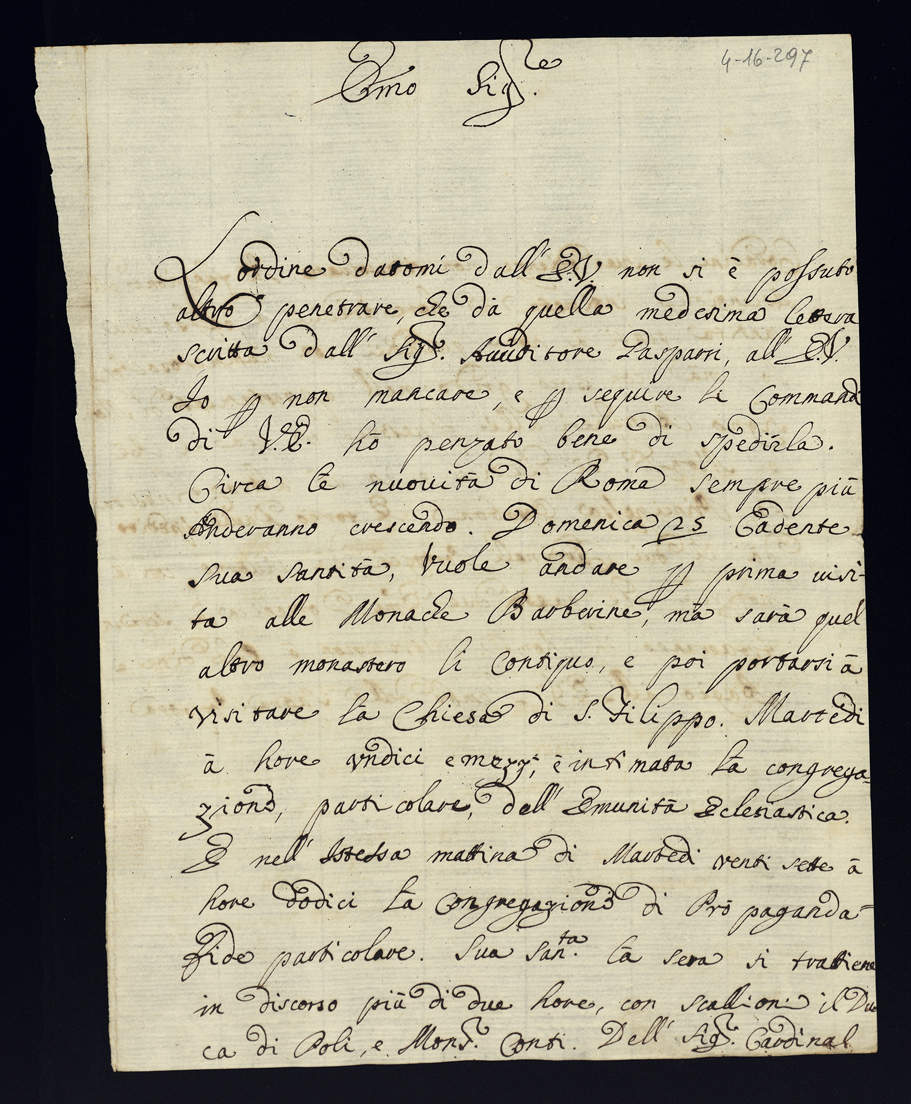 4-16-297
Emo Sig.re
L'ordine datomi dall' E.V. non si è possuto
altro penetrare, che dà quella medesima lettera
scritta dall' Sig.r Auuditore Gasparri, all' E.V.
Io p non mancare, e p seguire li Command
di V.E. hò penzato bene di spedirla.
Circa le nuouità di Roma sempre più
Anderanno crescendo. Domenica 25 Cadente
Sua Santità, Vuole andare p prima uisi-
ta alle Monache Barberine, mà sarà quel
altro monastero li Contiguo, e poi portarsi à
Visitare la Chiesa di S. Filippo. Martedi
à hore Vndici e mezz:a, è intimata la congrega=
zione, particolare, dell' Emunità Eclesiastica.
E nell' Istessa mattina di Martedi venti sette à
hore dodici la Congregazione di Prò paganda=
Fide particolare. Sua San.ta la sera si trattiene
in discorso più di due hore, con Scallioni il Du
ca di Poli, e Mons.r Conti. Dell' Sig.r Cardinal